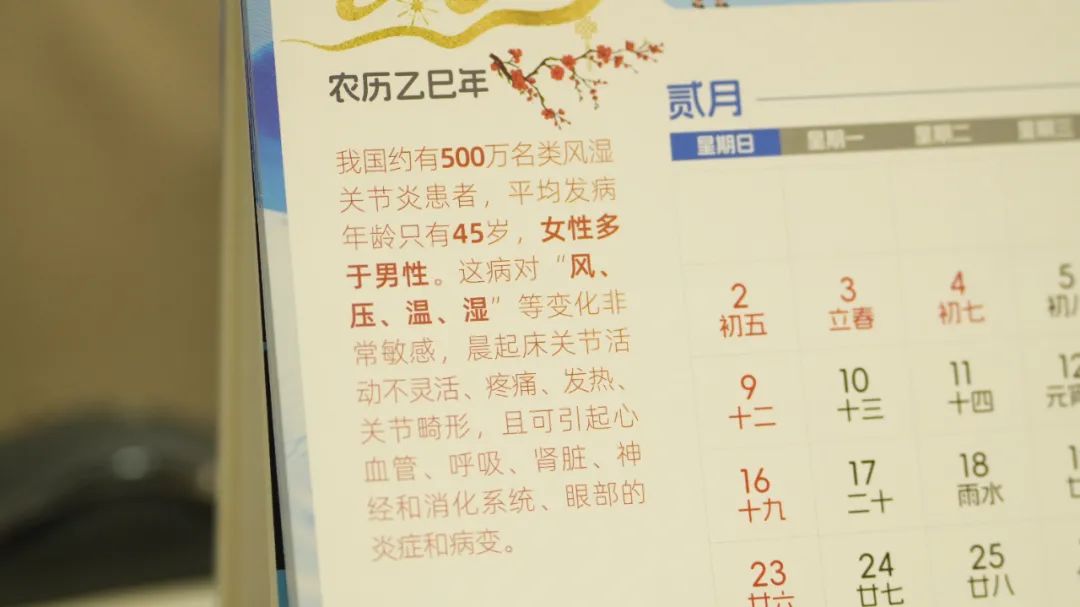 农历乙巳年
我国约有500万名类风湿
关节炎患者，平均发病
年龄只有45岁，女性多
于男性。这病对“风、
压、温、湿”等变化非
常敏感，晨起床关节活
动不灵活、疼痛、发热、
关节畸形，且可引起心
血管、呼吸、肾脏、神
经和消化系统、眼部的
炎症和病变。
贰月
星期日 星期一 星期二 星期三
2 3 4 5
初五 立春 初七 初八
9 10 11 12
十二 十三 十四 元宵
16 17 18
十九 二十 雨水
23 24 25
廿六 廿七 廿八